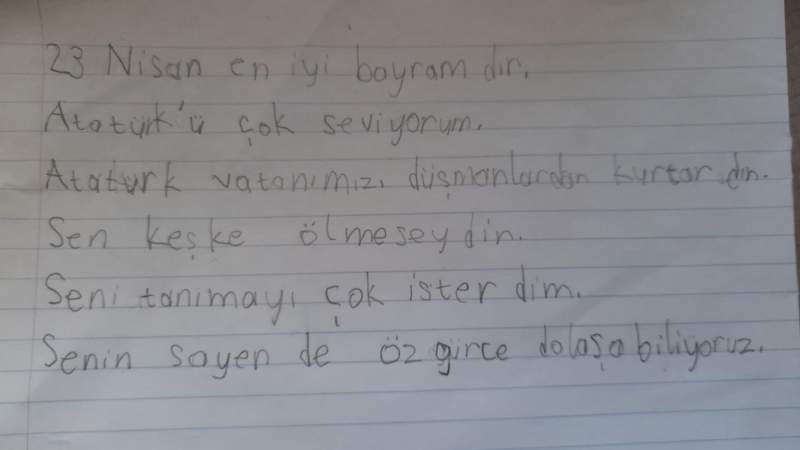 23 Nisan en iyi bayram dır.
Atatürk'ü çok seviyorum.
Atatürk vatanımızı düşmanlardan kurtar dın.
Sen keşke ölmeseydin.
Seni tanımayı çok ister dim.
Senin sayen de özgirce dolaşabiliyoruz.